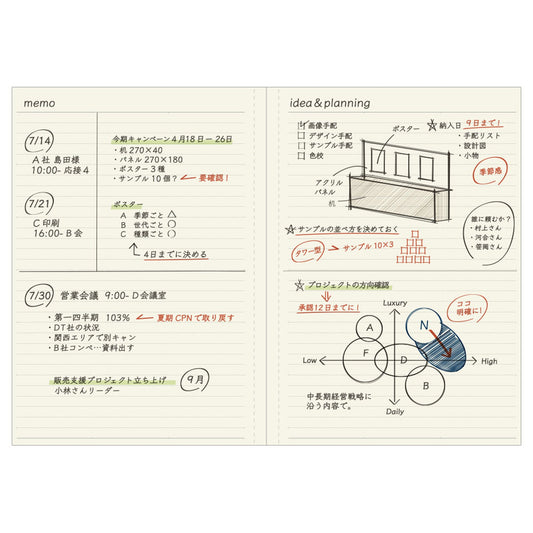 memo
7/14
A社 島田様
10:00- 応接4
今期キャンペーン4月18日ー26日
・机270×40
・パネル270×180
・ポスター3種
・サンプル10個? ← 要確認!
7/21
C印刷
16:00- B会
ポスター
A 季節ごと △
B 世代ごと ○
C 種類ごと ○
4日までに決める
7/30 営業会議 9:00- D会議室
・第一四半期 103% ← 夏期CPNで取り戻す
・DT社の状況
・関西エリアで別キャン
・B社コンペ…資料出す
販売支援プロジェクト立ち上げ
小林さんリーダー
9月
idea & planning
画像手配
デザイン手配
サンプル手配
色校
ポスター
アクリル
パネル
机
☆納入日 9日まで!
・手配リスト
・設計図
・小物
季節感
☆サンプルの並べ方を決めておく
タワー型 → サンプル10×3
誰に頼むか?
・村上さん
・河合さん
・菅岡さん
☆プロジェクトの方向確認
承認12日までに!
ココ
明確に!
Luxury
A
N
F
D
B
Low
High
Daily
中長期経営戦略に
沿う内容で。